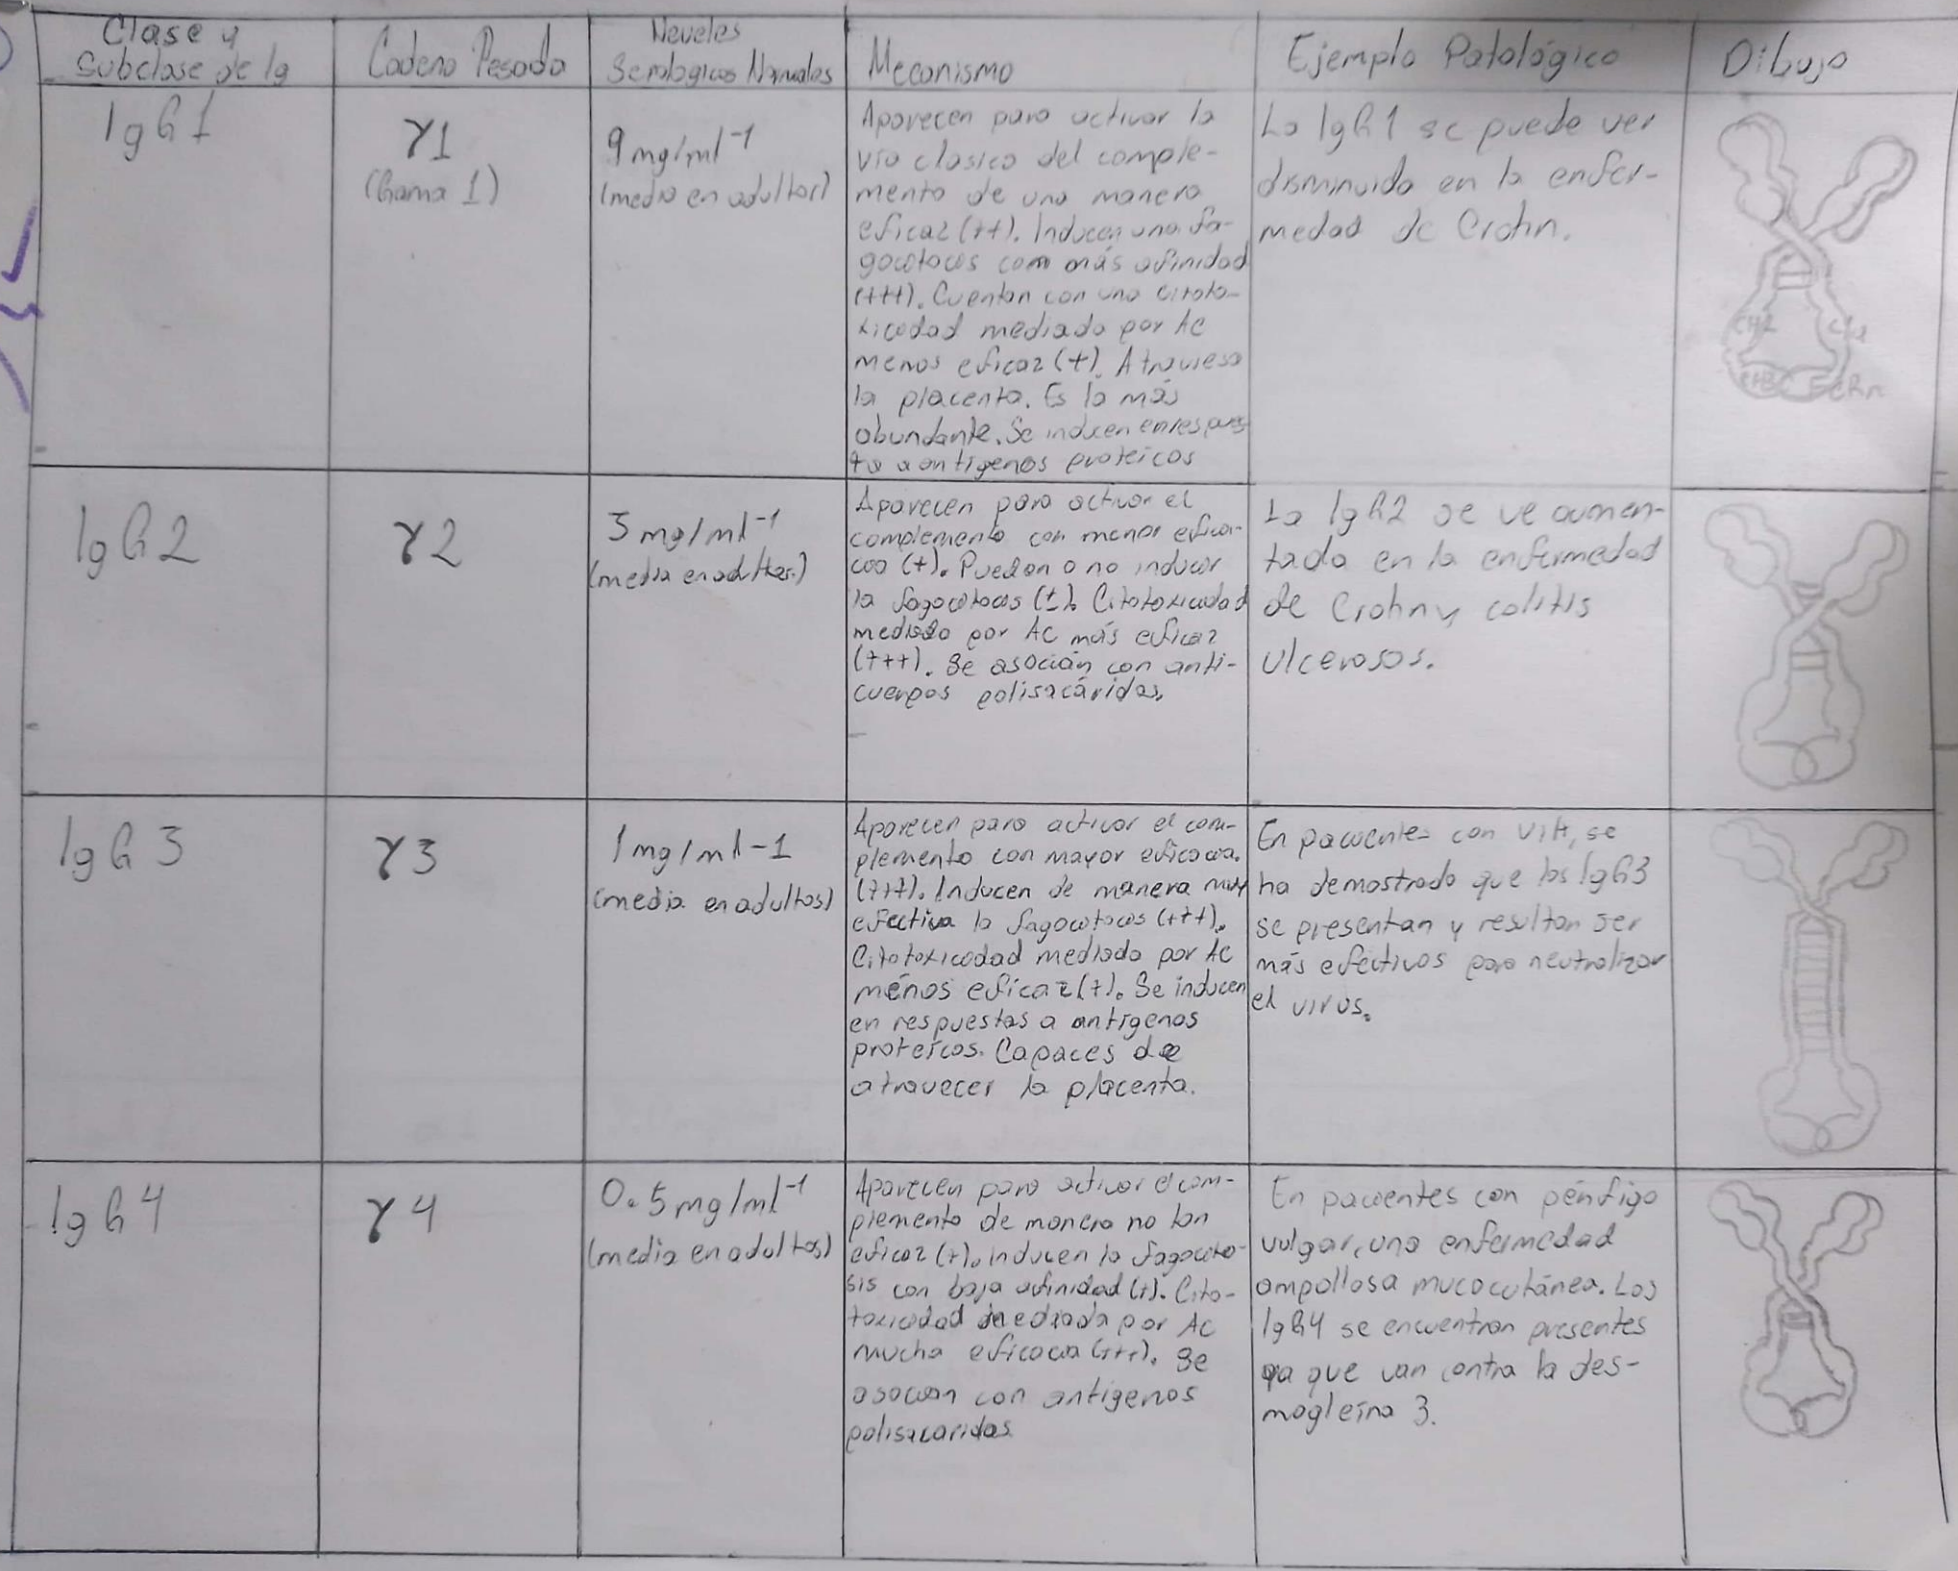 Clase y
Subclase de Ig
Cadena Pesada
Neveles
Serologicos Normales
Mecanismo
Ejemplo Patológico
Dibujo
IgG1
γ1
(Gama 1)
9 mg/ml⁻¹
(media en adultos)
Aparecen para activar la
vía clasica del comple-
mento de una manera
eficaz (++). Inducen una fa-
gocotocis com más afinidad
(+++). Cuentan con una citoto-
xicidad mediada por Ac
menos eficaz (+). Atraviesa
la placenta. Es la más
abundante. Se inducen en respues
ta a antigenos proteicos
La IgG1 se puede ver
disminuida en la enfer-
medad de Crohn.
CH2
CH3
FcRn
IgG2
γ2
3 mg/ml⁻¹
(media en adultos)
Aparecen para activar el
complemento con menor efica-
cia (+). Pueden o no inducir
la fagocitocis (±). Citotoxicidad
mediada por AC más eficaz
(+++). Se asocian con anti-
cuerpos polisacáridos.
La IgG2 se ve aumen-
tada en la enfermedad
de Crohn y colitis
ulcerosos.
IgG3
γ3
1 mg/ml-1
(media en adultos)
Aparecen para activar el com-
plemento con mayor eficacia.
(+++). Inducen de manera muy
efectiva la fagocitocis (+++).
Citotoxicidad mediada por AC
ménos eficaz (+). Se inducen
en respuestas a antígenos
proteícos. Capaces de
atravecer la placenta.
En pacientes con VIH, se
ha demostrado que las IgG3
se presentan y resultan ser
más efectivos para neutralizar
el virus.
IgG4
γ4
0.5 mg/ml⁻¹
(media en adultos)
Aparecen para activar el com-
plemento de manera no tan
eficaz (+). Inducen la fagocito-
sis con baja afinidad (+). Cito-
toxicidad mediada por AC
mucha eficacia (+++). Se
asocian con antígenos
polisacaridos
En pacientes con pénfigo
vulgar, una enfermedad
ampollosa mucocutánea. Los
IgG4 se encuentran presentes
ya que van contra la des-
mogleína 3.